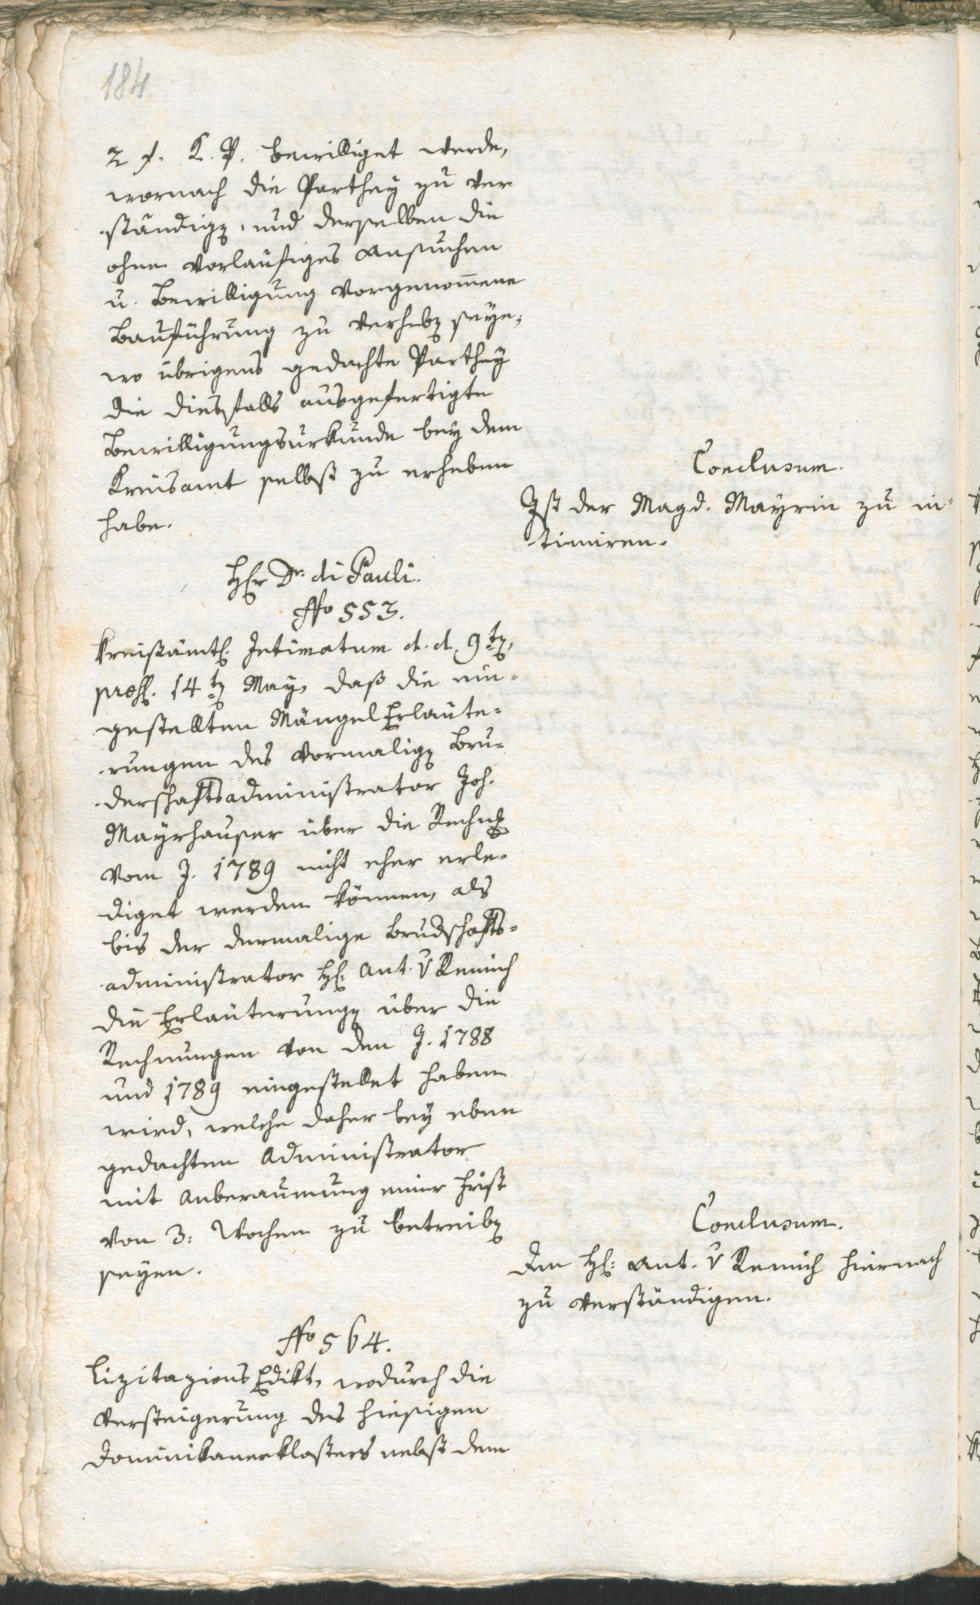 184
2 f. K. P. bewilliget werde,
wornach die Parthey zu ver
ständigen, und derselben die
ohne vorläufiges Ansuchen
u. Bewilligung vorgenom̅ene
Bauführung zu verheben seye,
wo übrigens gedachte Parthey
die diesfalls ausgefertigte
Bewilligungsurkunde bey dem
Kreisamt selbst zu erheben
habe.
Conclusum.
Ist der Magd. Mayrin zu in-
timiren.
Hr Dr. di Pauli.
No 553.
Kreisämtl. Intimatum d. d. 9ten,
präs. 14ten May, daß die ein-
gestellten Mängel Erläute-
rungen des vormaligen Bru-
derschaftsadministrator Joh.
Mayrhauser über die Rechnung
vom J. 1789 nicht eher erle-
diget werden können, als
bis der dermalige Brudschafts-
administrator H: Ant. v Remich
die Erläuterungen über die
Rechnungen von den J. 1788
und 1789 eingestellet haben
wird, welche daher bey eben
gedachten Administrator
mit Anberaumung einer Frist
von 3: Wochen zu betreiben
seyen.
Conclusum.
Den H: Ant. v Remich hiernach
zu verständigen.
No 564.
Lizitazions Edikt, wodurch die
Versteigerung des hiesigen
Dominikanerklosters nebst dem